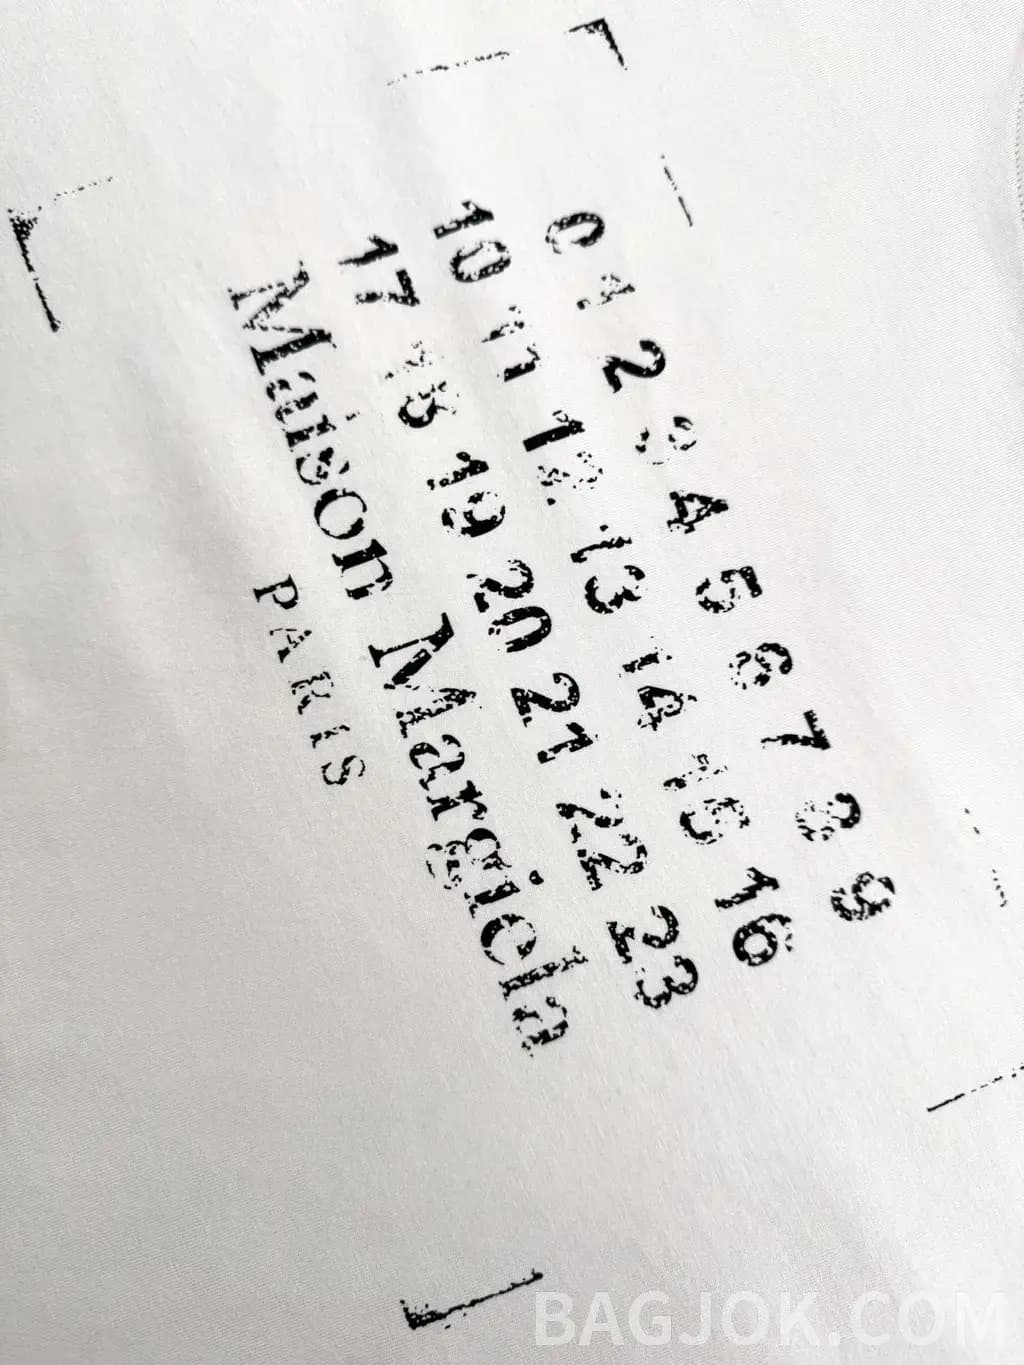 0 1 2 3 4 5 6 7 8 9
10 11 12 13 14 15 16
17 18 19 20 21 22 23
Maison Margiela
PARIS
BAGJOK.COM